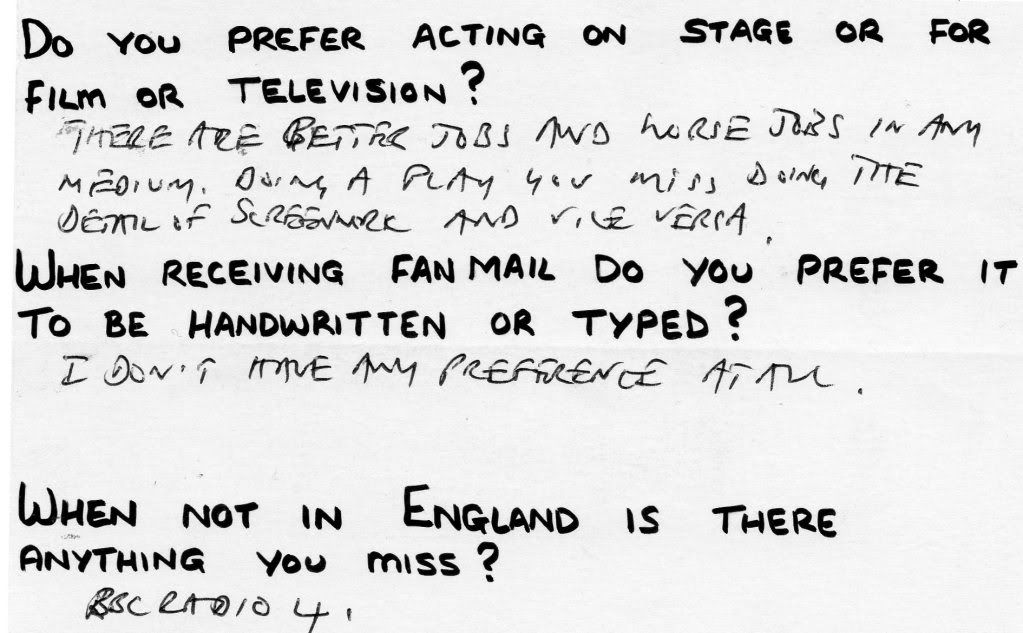 DO YOU PREFER ACTING ON STAGE OR FOR
FILM OR TELEVISION?
THERE ARE BETTER JOBS AND WORSE JOBS IN ANY
MEDIUM. DOING A PLAY YOU MISS DOING THE
DETAIL OF SCREENWORK AND VICE VERSA.
WHEN RECEIVING FAN MAIL DO YOU PREFER IT
TO BE HANDWRITTEN OR TYPED?
I DON'T HAVE ANY PREFERENCE AT ALL.
WHEN NOT IN ENGLAND IS THERE
ANYTHING YOU MISS?
BBC RADIO 4.